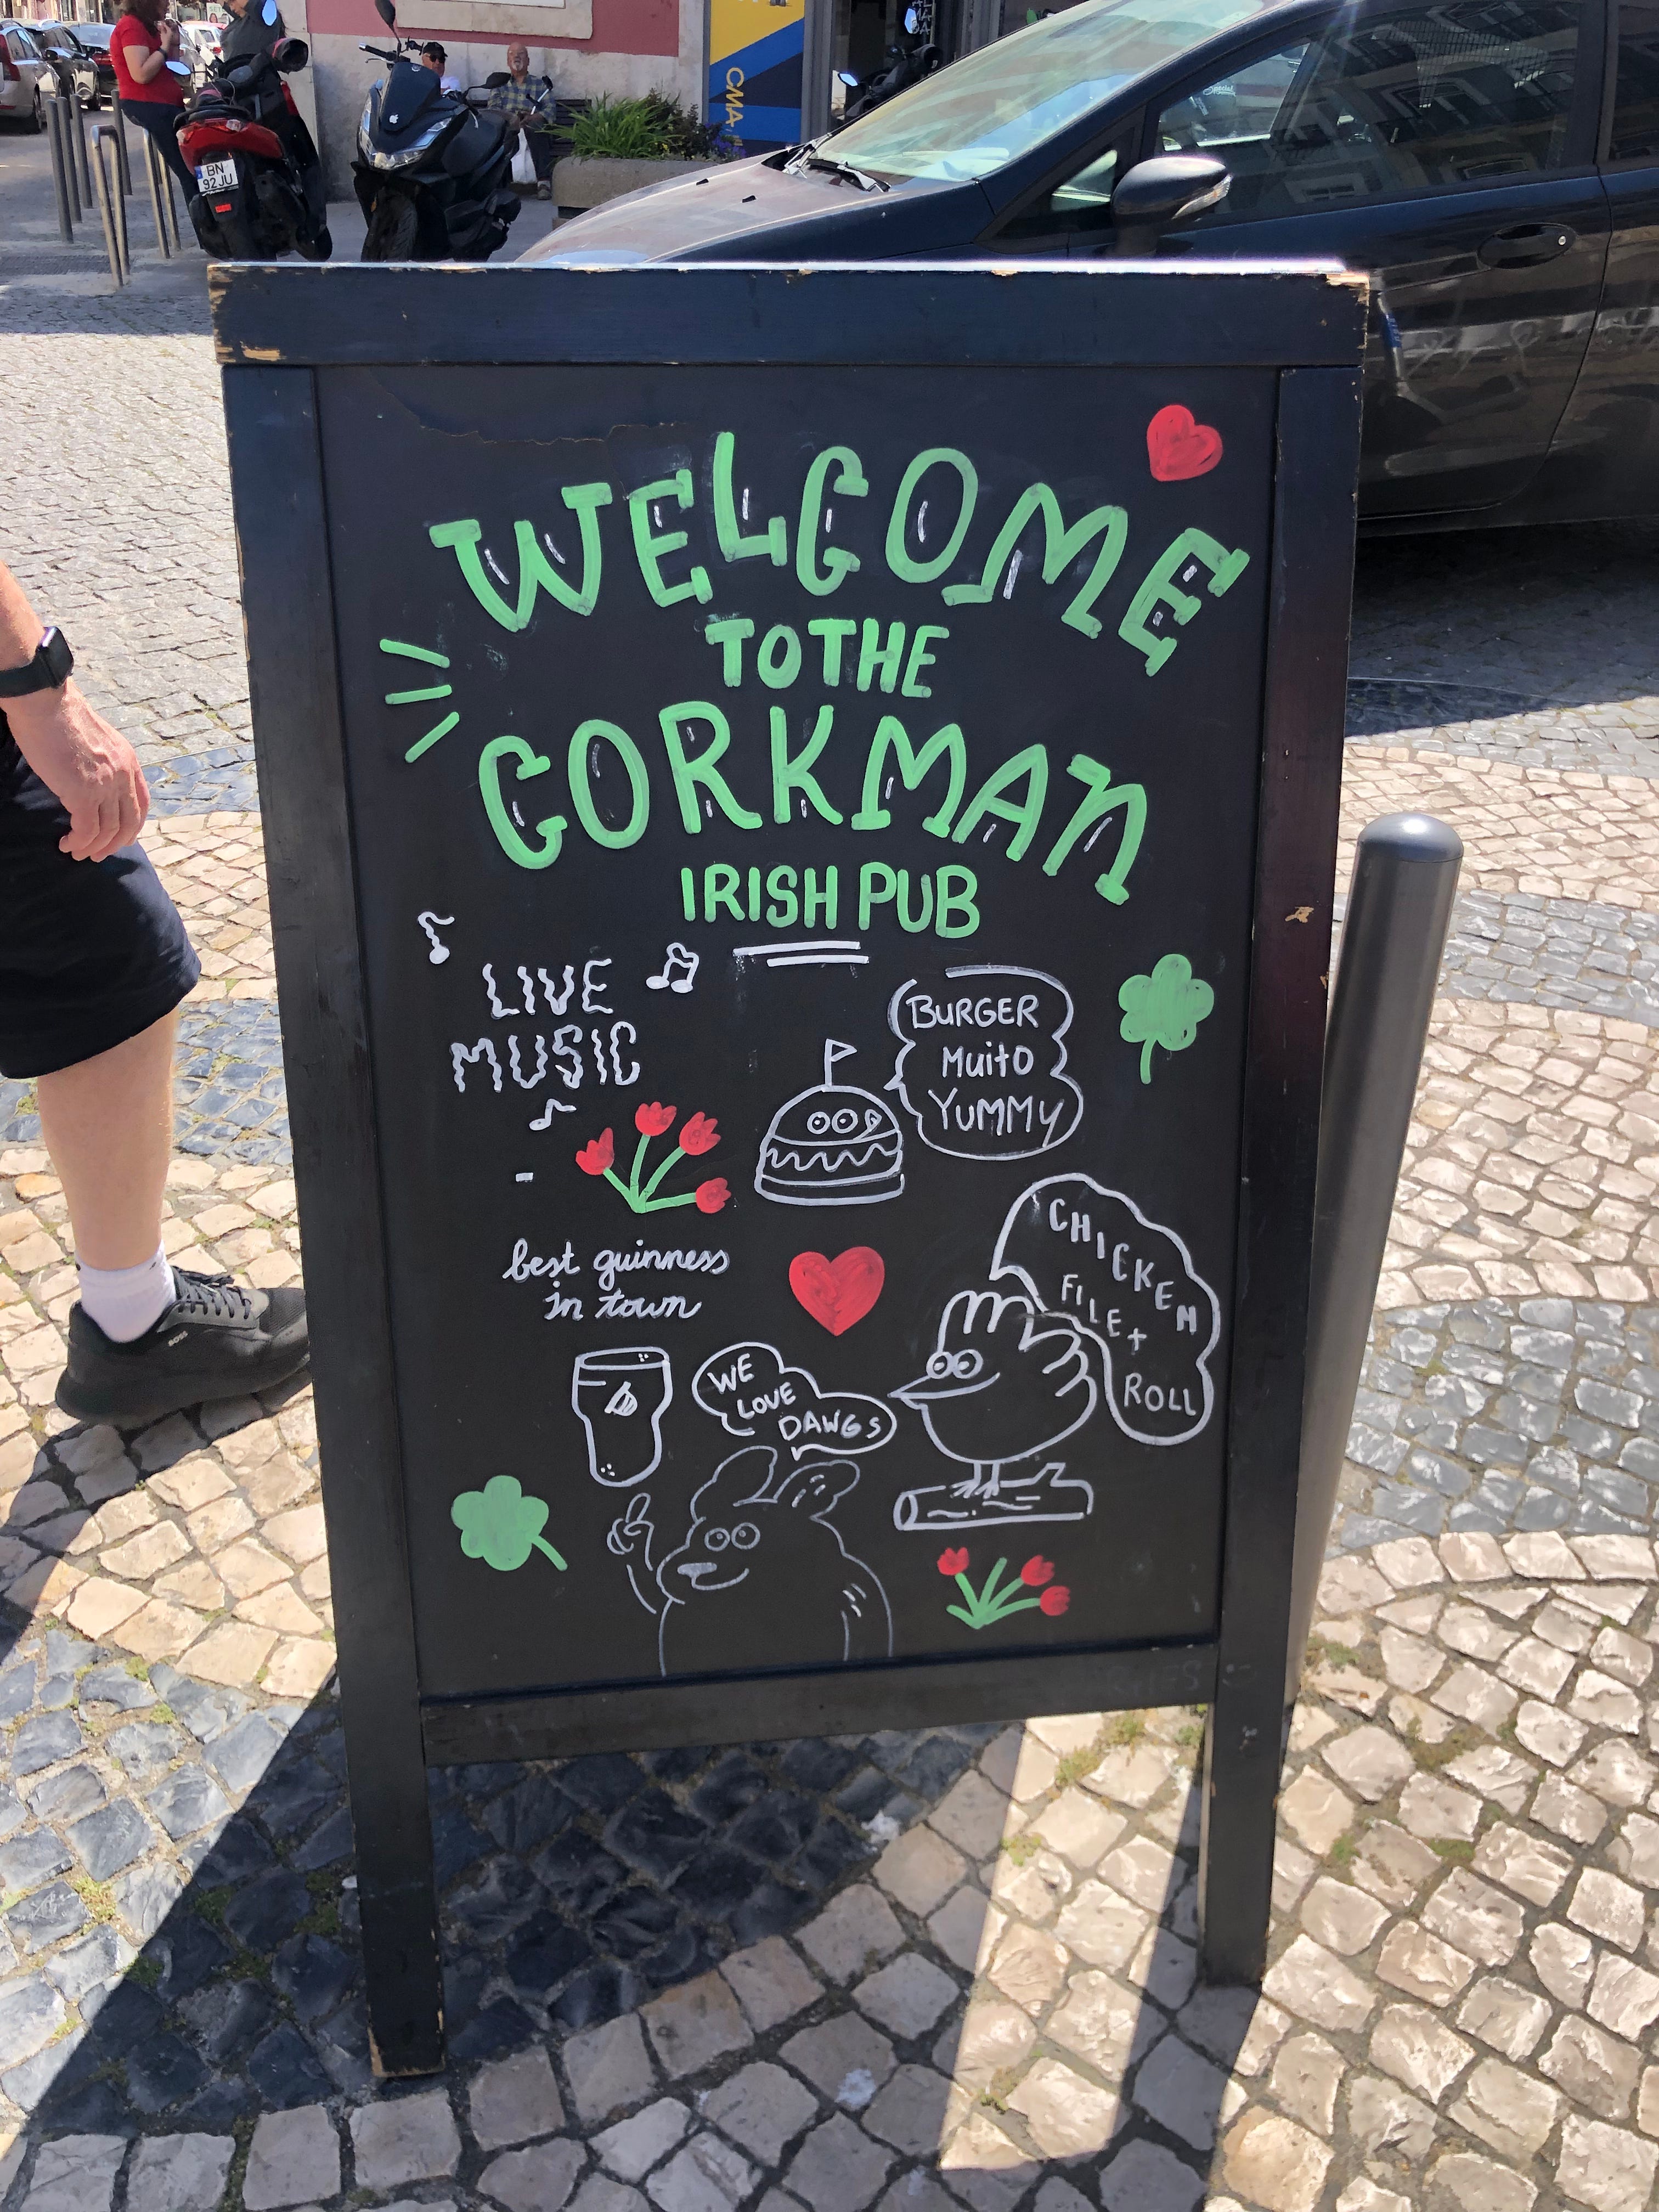 CMA
BN
92JU
WELCOME
TO THE
CORKMAN
IRISH PUB
LIVE
MUSIC
BURGER
Muito
YUMMY
CHICKEN
FILEt
ROLL
best guinness
in town
WE
LOVE
DAWGS
BOSS